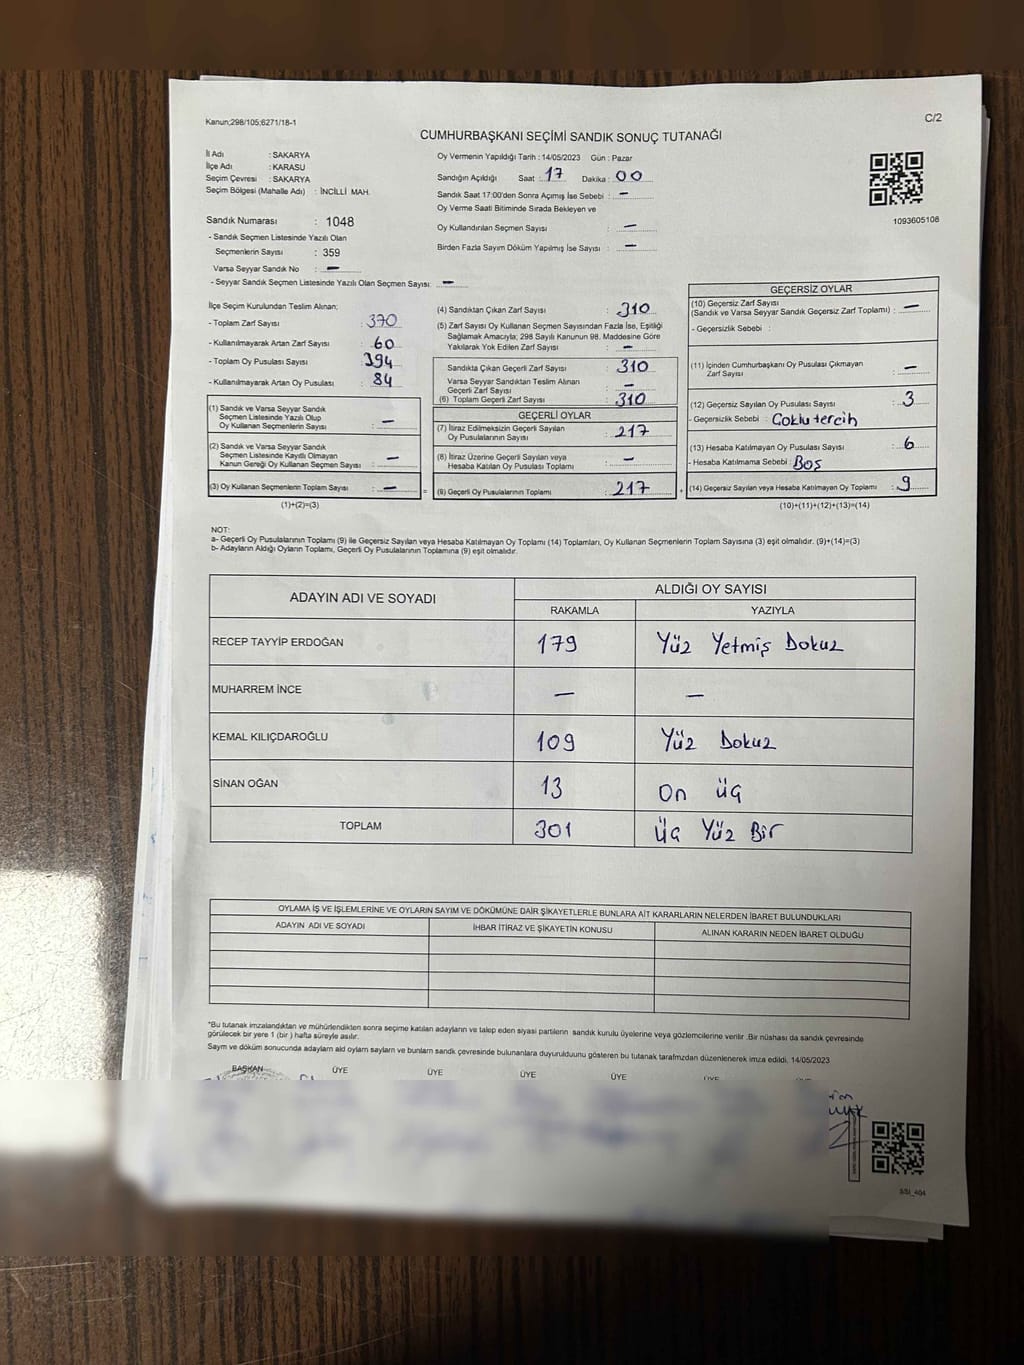 Kanun;298/105;6271/18-1
C/2
CUMHURBAŞKANI SEÇİMİ SANDIK SONUÇ TUTANAĞI
İl Adı : SAKARYA
İlçe Adı : KARASU
Seçim Çevresi : SAKARYA
Seçim Bölgesi (Mahalle Adı) : İNCİLLİ MAH.
Sandık Numarası : 1048
- Sandık Seçmen Listesinde Yazılı Olan
Seçmenlerin Sayısı : 359
Varsa Seyyar Sandık No : —
- Seyyar Sandık Seçmen Listesinde Yazılı Olan Seçmen Sayısı: —
Oy Vermenin Yapıldığı Tarih : 14/05/2023 Gün : Pazar
Sandığın Açıldığı Saat : 17 Dakika : 00
Sandık Saat 17:00'den Sonra Açımış İse Sebebi : —
Oy Verme Saati Bitiminde Sırada Bekleyen ve
Oy Kullandırılan Seçmen Sayısı : —
Birden Fazla Sayım Döküm Yapılmış İse Sayısı : —
1093605108
İlçe Seçim Kurulundan Teslim Alınan;
- Toplam Zarf Sayısı : 370
- Kullanılmayarak Artan Zarf Sayısı : 60
- Toplam Oy Pusulası Sayısı : 394
- Kullanılmayarak Artan Oy Pusulası : 84
(1) Sandık ve Varsa Seyyar Sandık
Seçmen Listesinde Yazılı Olup
Oy Kullanan Seçmenlerin Sayısı : —
(2) Sandık ve Varsa Seyyar Sandık
Seçmen Listesinde Kayıtlı Olmayan
Kanun Gereği Oy Kullanan Seçmen Sayısı : —
(3) Oy Kullanan Seçmenlerin Toplam Sayısı : —
(1)+(2)=(3)
(4) Sandıktan Çıkan Zarf Sayısı : 310
(5) Zarf Sayısı Oy Kullanan Seçmen Sayısından Fazla İse, Eşitliği
Sağlamak Amacıyla; 298 Sayılı Kanunun 98. Maddesine Göre
Yakılarak Yok Edilen Zarf Sayısı : —
Sandıkta Çıkan Geçerli Zarf Sayısı : 310
Varsa Seyyar Sandıktan Teslim Alınan
Geçerli Zarf Sayısı : —
(6) Toplam Geçerli Zarf Sayısı : 310
GEÇERLİ OYLAR
(7) İtiraz Edilmeksizin Geçerli Sayılan
Oy Pusulalarının Sayısı : 217
(8) İtiraz Üzerine Geçerli Sayılan veya
Hesaba Katılan Oy Pusulası Toplamı : —
= (9) Geçerli Oy Pusulalarının Toplamı : 217
GEÇERSİZ OYLAR
(10) Geçersiz Zarf Sayısı
(Sandık ve Varsa Seyyar Sandık Geçersiz Zarf Toplamı) : —
- Geçersizlik Sebebi :
(11) İçinden Cumhurbaşkanı Oy Pusulası Çıkmayan
Zarf Sayısı : —
(12) Geçersiz Sayılan Oy Pusulası Sayısı : 3
- Geçersizlik Sebebi : Çoklu tercih
(13) Hesaba Katılmayan Oy Pusulası Sayısı : 6
- Hesaba Katılmama Sebebi : Boş
+ (14) Geçersiz Sayılan veya Hesaba Katılmayan Oy Toplamı : 9
(10)+(11)+(12)+(13)=(14)
NOT:
a- Geçerli Oy Pusulalarının Toplamı (9) ile Geçersiz Sayılan veya Hesaba Katılmayan Oy Toplamı (14) Toplamları, Oy Kullanan Seçmenlerin Toplam Sayısına (3) eşit olmalıdır. (9)+(14)=(3)
b- Adayların Aldığı Oyların Toplamı, Geçerli Oy Pusulalarının Toplamına (9) eşit olmalıdır.
ADAYIN ADI VE SOYADI
ALDIĞI OY SAYISI
RAKAMLA YAZIYLA
RECEP TAYYİP ERDOĞAN 179 Yüz Yetmiş Dokuz
MUHARREM İNCE — —
KEMAL KILIÇDAROĞLU 109 Yüz Dokuz
SİNAN OĞAN 13 On üç
TOPLAM 301 Üç Yüz Bir
OYLAMA İŞ VE İŞLEMLERİNE VE OYLARIN SAYIM VE DÖKÜMÜNE DAİR ŞİKAYETLERLE BUNLARA AİT KARARLARIN NELERDEN İBARET BULUNDUKLARI
ADAYIN ADI VE SOYADI İHBAR İTİRAZ VE ŞİKAYETİN KONUSU ALINAN KARARIN NEDEN İBARET OLDUĞU
*Bu tutanak imzalandıktan ve mühürlendikten sonra seçime katılan adayların ve talep eden siyasi partilerin sandık kurulu üyelerine veya gözlemcilerine verilir .Bir nüshası da sandık çevresinde
görülecek bir yere 1 (bir ) hafta süreyle asılır.
Sayım ve döküm sonucunda adayların ald oyların sayların ve bunların sandk çevresinde bulunanlara duyurulduunu gösteren bu tutanak tarafmzdan düzenlenerek imza edildi. 14/05/2023
BAŞKAN ÜYE ÜYE ÜYE ÜYE ÜYE
S/SI_404